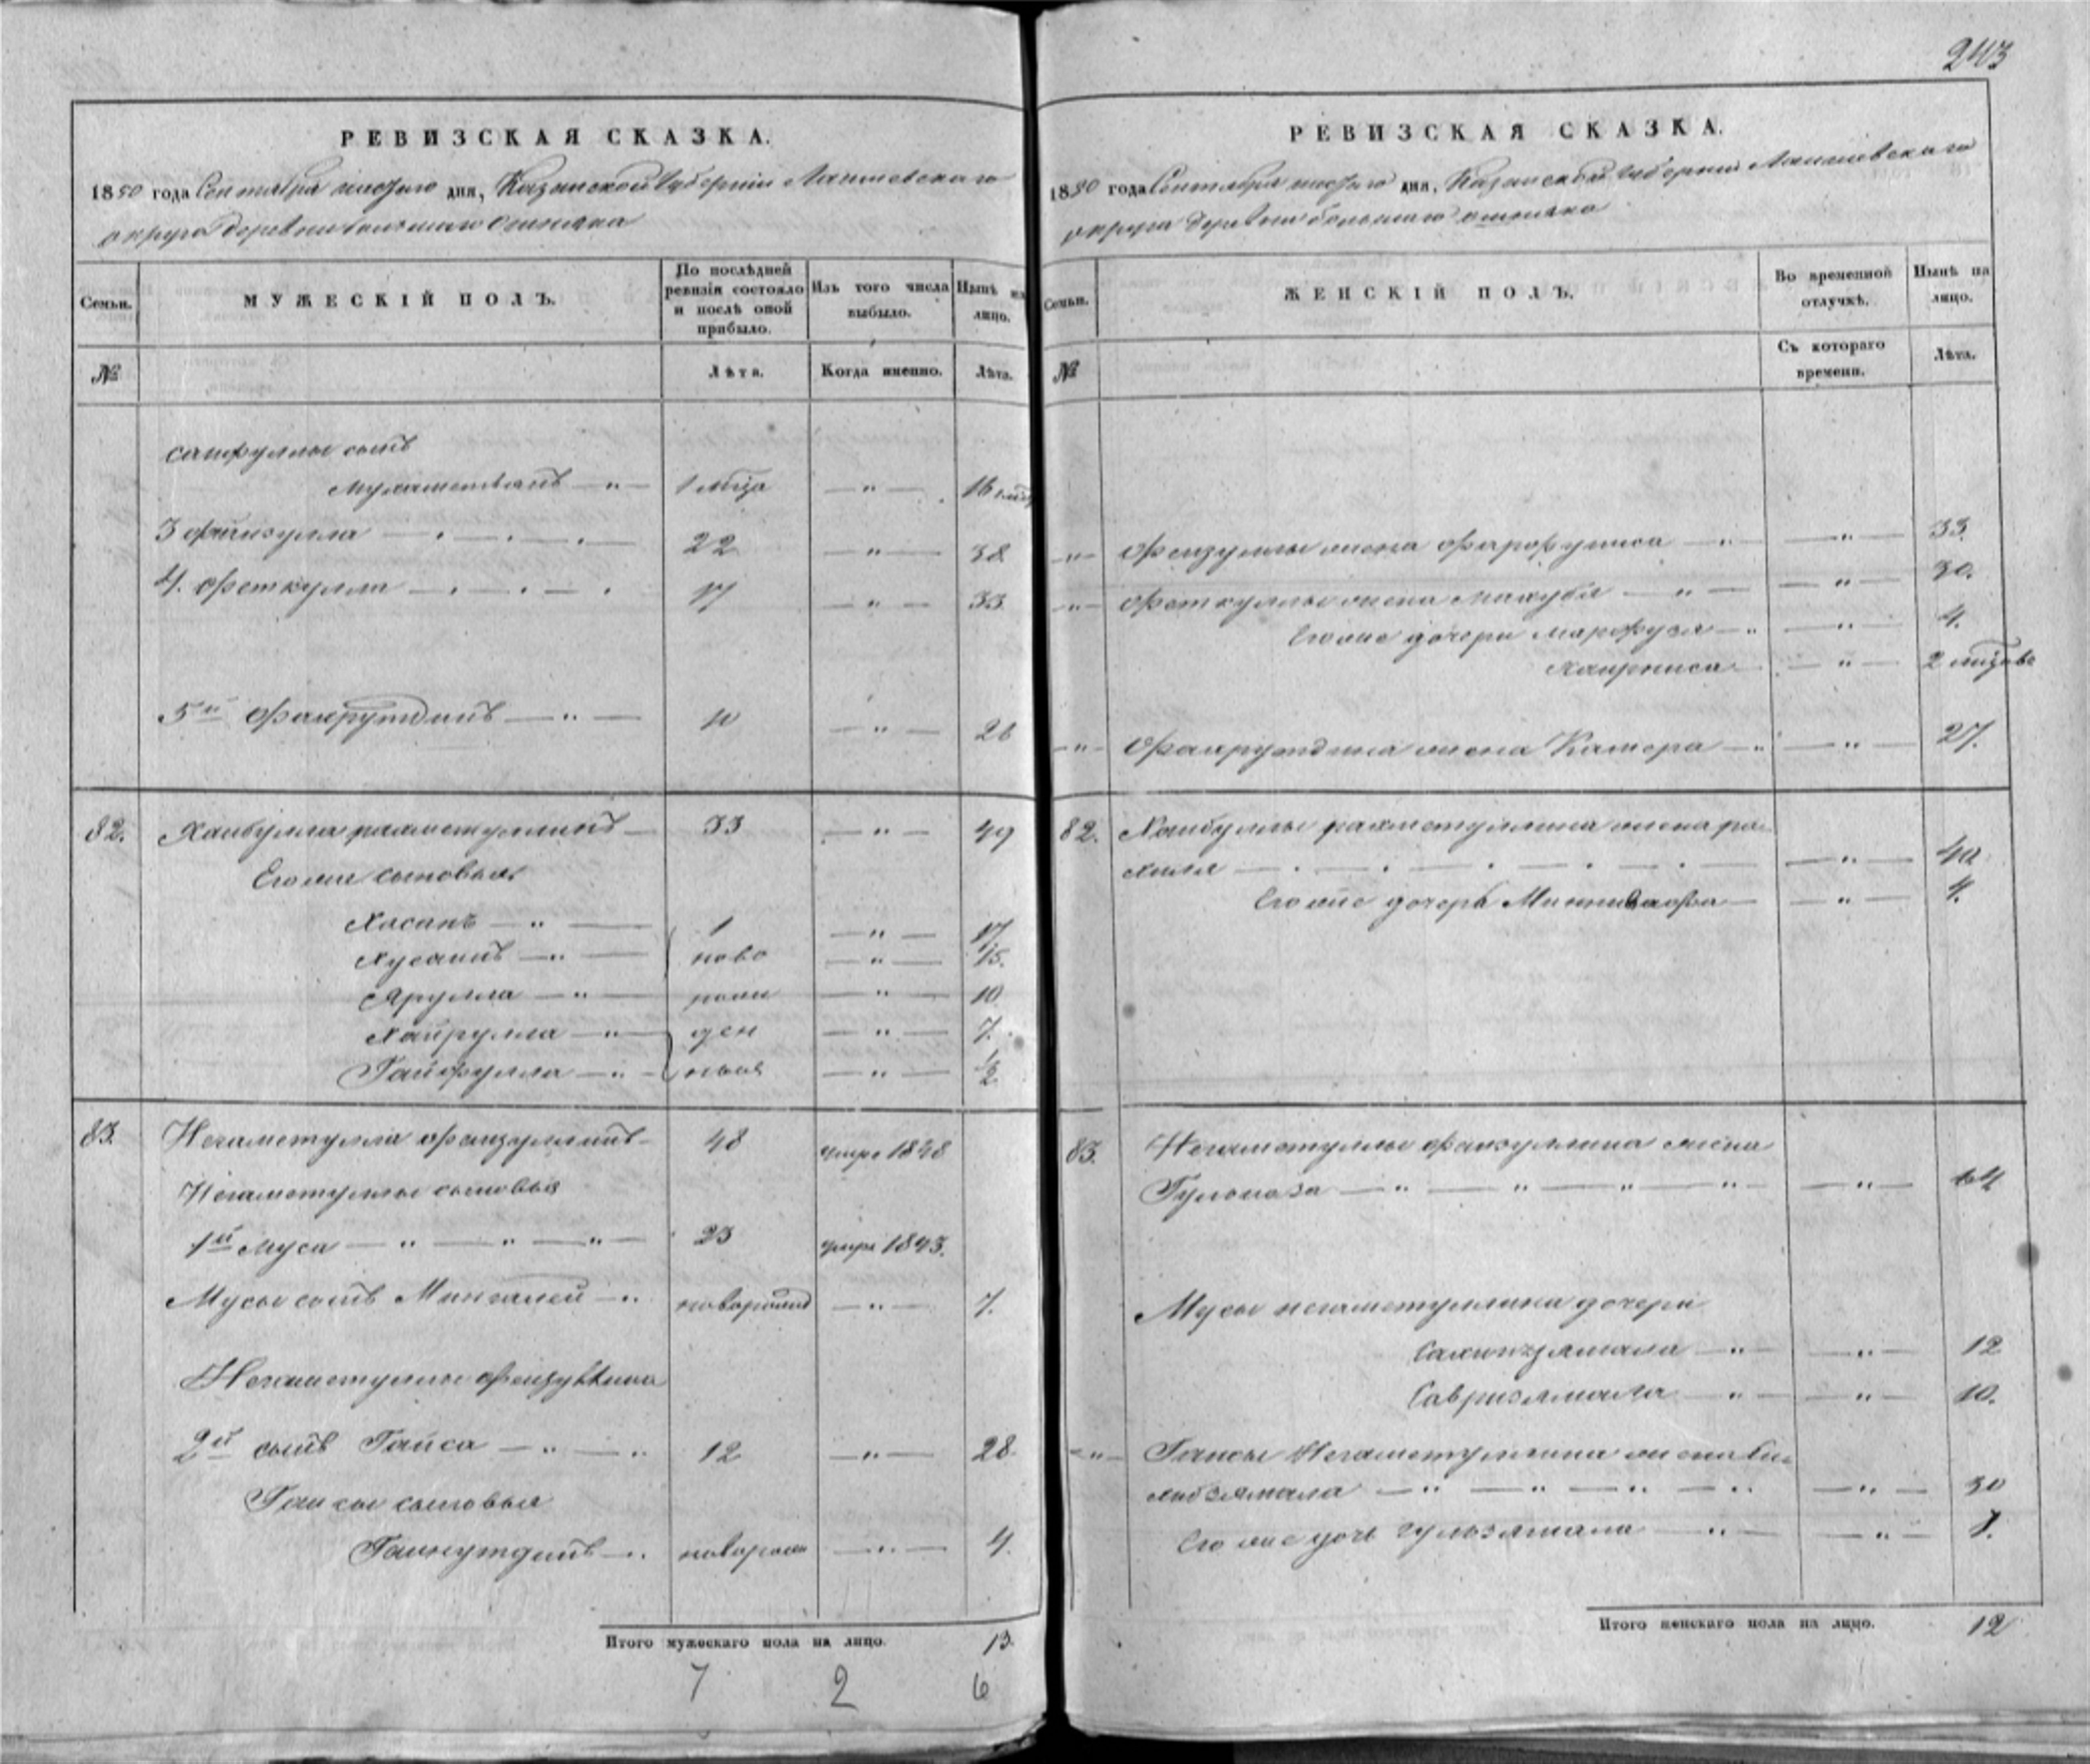 243
РЕВИЗСКАЯ СКАЗКА.
1850 года Сентября шестаго дня, Казанской Губернии Лаишевскаго
округа деревни большаго
МУЖЕСКІЙ ПОЛЪ.
Семьи.
По послѣдней
ревизіи состояло
и послѣ оной
прибыло.
Изъ того числа
выбыло.
Нынѣ на
лицо.
№
Лѣта.
Когда именно.
Лѣта.
Сайфуллы сынъ
— " — 1 мѣца — " — 16
3 Файзулла — 22 — " — 38
4. Феткулла — 17 — " — 33
5й Фахрутдинъ — " — 10 — " — 26
82. Хаибулла рахметуллинъ — 33 — " — 49
Его же сыновья
Хасанъ — " — 1 — " — 17
Хусаинъ — " — ново — " — 15.
Ярулла — " — рож — " — 10
Хайрулла — " — ден — " — 7.
Гайфулла — " — ныя — " — 1/2
83. Негаметулла Файзуллинъ 48 умре 1848
Негаметуллы сыновья
1й Муса — " — " — " — 23 умре 1843.
Мусы сынъ Мингалей — " новорожд — " — 7.
Негаметуллы
2й сынъ Гайса — " — " 12 — " — 28.
Гайсы сыновья
Гайнутдинъ — " новорож — " — 4.
Итого мужескаго пола на лицо. 13.
7 2 6
РЕВИЗСКАЯ СКАЗКА.
1850 года Сентября шестаго дня, Казанской Губернии Лаишевскаго
округа деревни большаго
Семьи.
ЖЕНСКІЙ ПОЛЪ.
Во временной
отлучкѣ.
Нынѣ на
лицо.
№
Съ котораго
времени.
Лѣта.
— " — Фейзуллы жена — " — " — 33.
— " — Феткуллы жена Махубя — " — " — 30.
Его же дочери Марфуза — " — " — 4.
— " — 2
— " — Фахрутдина жена — " — " — 27.
82. Хаибуллы рахметуллина жена ра
хиля — " — 40
Его же дочерь — " — 4.
83. Негаметуллы файзуллина жена
— " — " — " — " — " — 64
Мусы негаметуллина дочери
— " — " — 12
— " — " — 10.
— " — Гайсы Негаметуллина жена
— " — " — " — " — " — 30
Его же дочь гульзямала — " — " — 7.
Итого женскаго пола на лицо. 12